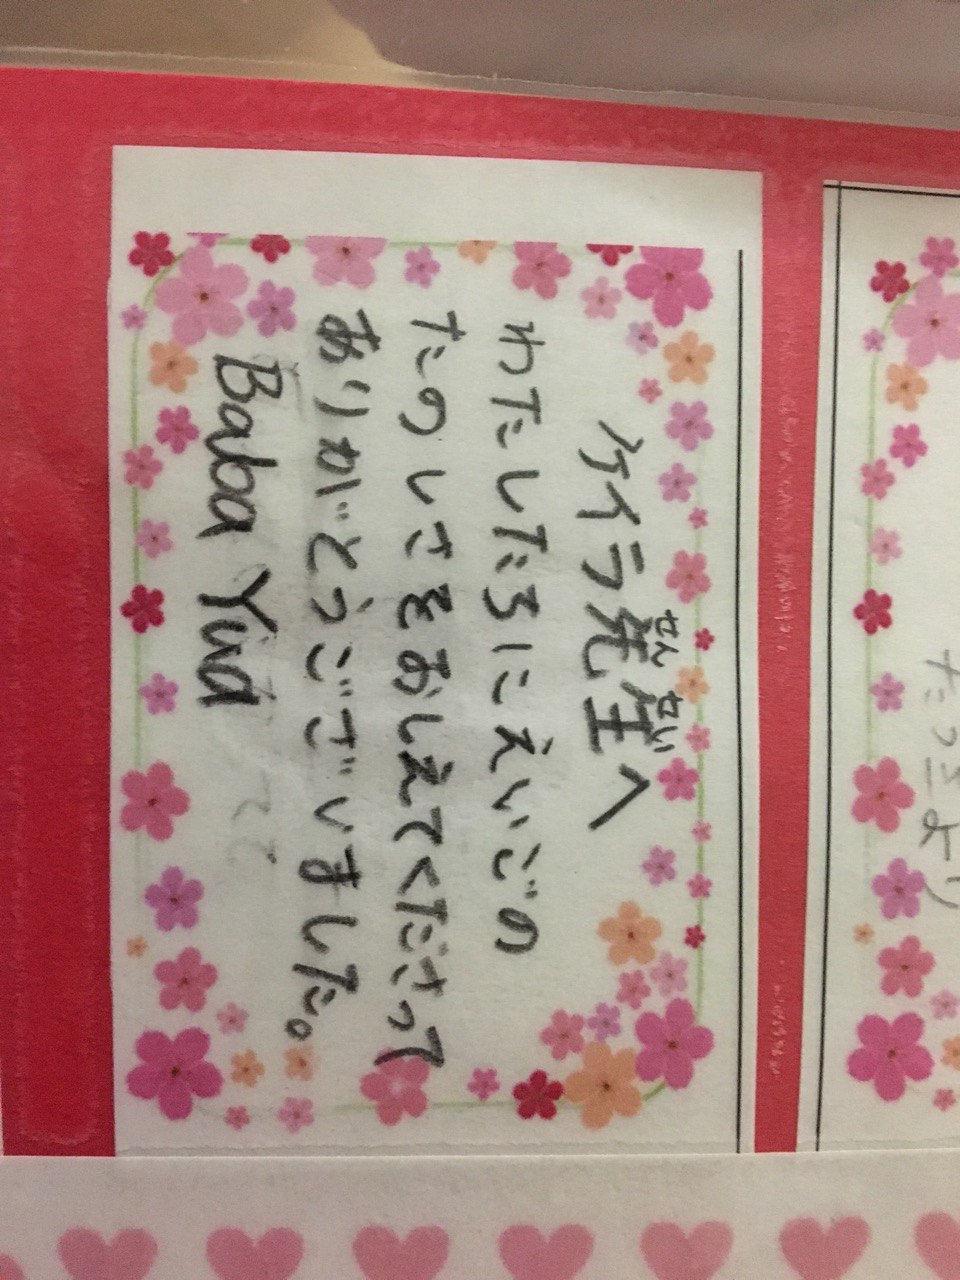 たつきより
せんせい
ケイラ先生へ
わたしたちにえいごの
たのしさをおしえてくださって
ありがとうございました。
Baba Yua